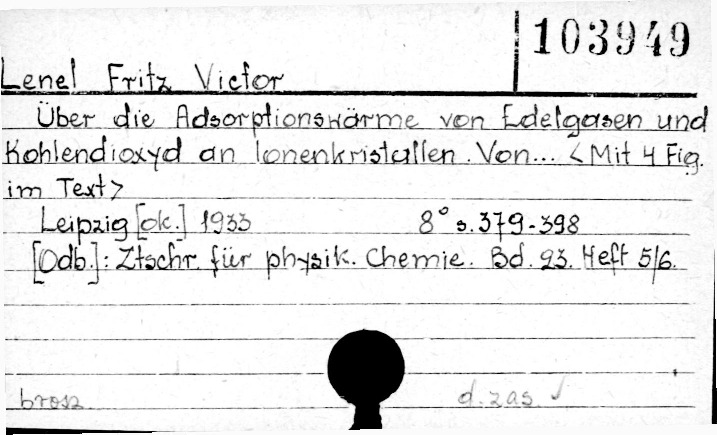 103949
Lenel Fritz Victor
Über die Adsorptionswärme von Edelgasen und
Kohlendioxyd an Ionenkristallen. Von... <Mit 4 Fig.
im Text>
Leipzig [ok.] 1933 8° s. 379-398
[Odb.]: Ztschr. für physik. Chemie. Bd. 23. Heft 5/6.
brosz. d. zas ✓